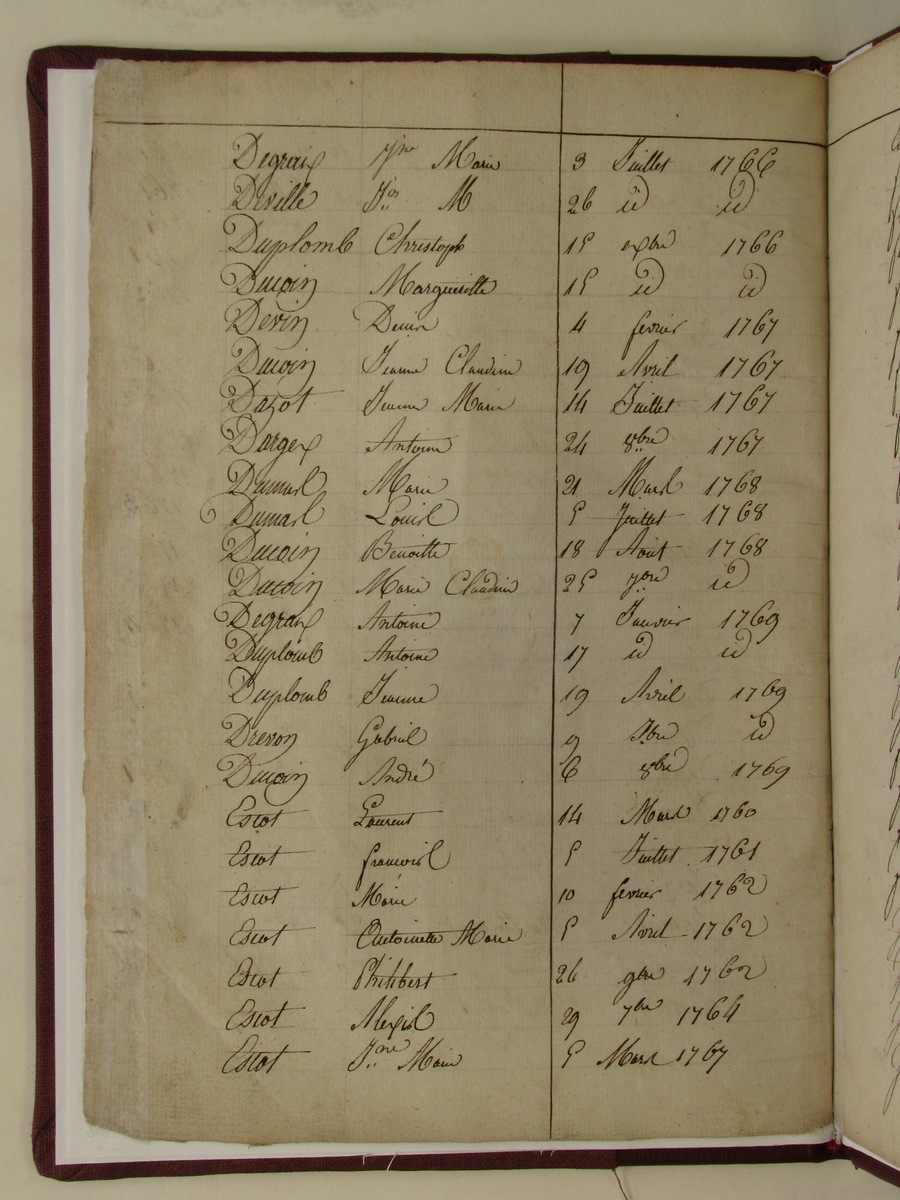 Degraix Jne Marie 3 Juillet 1766
Deville Js M 26 id id
Duplomb Christoph 15 Xbre 1766
Ducoin Margueritte 15 id id
Devin Denis 4 fevrier 1767
Ducoin Jeanne Claudine 19 Avril 1767
Dazot Jeanne Marie 14 Juillet 1767
Dargex Antoine 24 8bre 1767
Dumas Marie 21 Mars 1768
Dumas Louis 5 Juillet 1768
Ducoin Benoitte 18 Aout 1768
Ducoin Marie Claudine 25 7bre id
Degraix Antoine 7 Janvier 1769
Duplomb Antoine 17 id id
Duplomb Jeanne 19 Avril 1769
Drevon Gabriel 9 7bre id
Ducoin André 6 8bre 1769
Escot Laurent 14 Mars 1760
Escot francois 5 Juillet 1761
Escot Marie 10 fevrier 1762
Escot Antoinette Marie 5 Avril 1762
Escot Philibert 26 9bre 1762
Escot Alexis 29 7bre 1764
Escot Jne Marie 5 Mars 1767